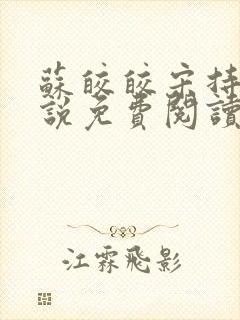 蘇皎皎宋持
說免費閱讀
江霖飛影